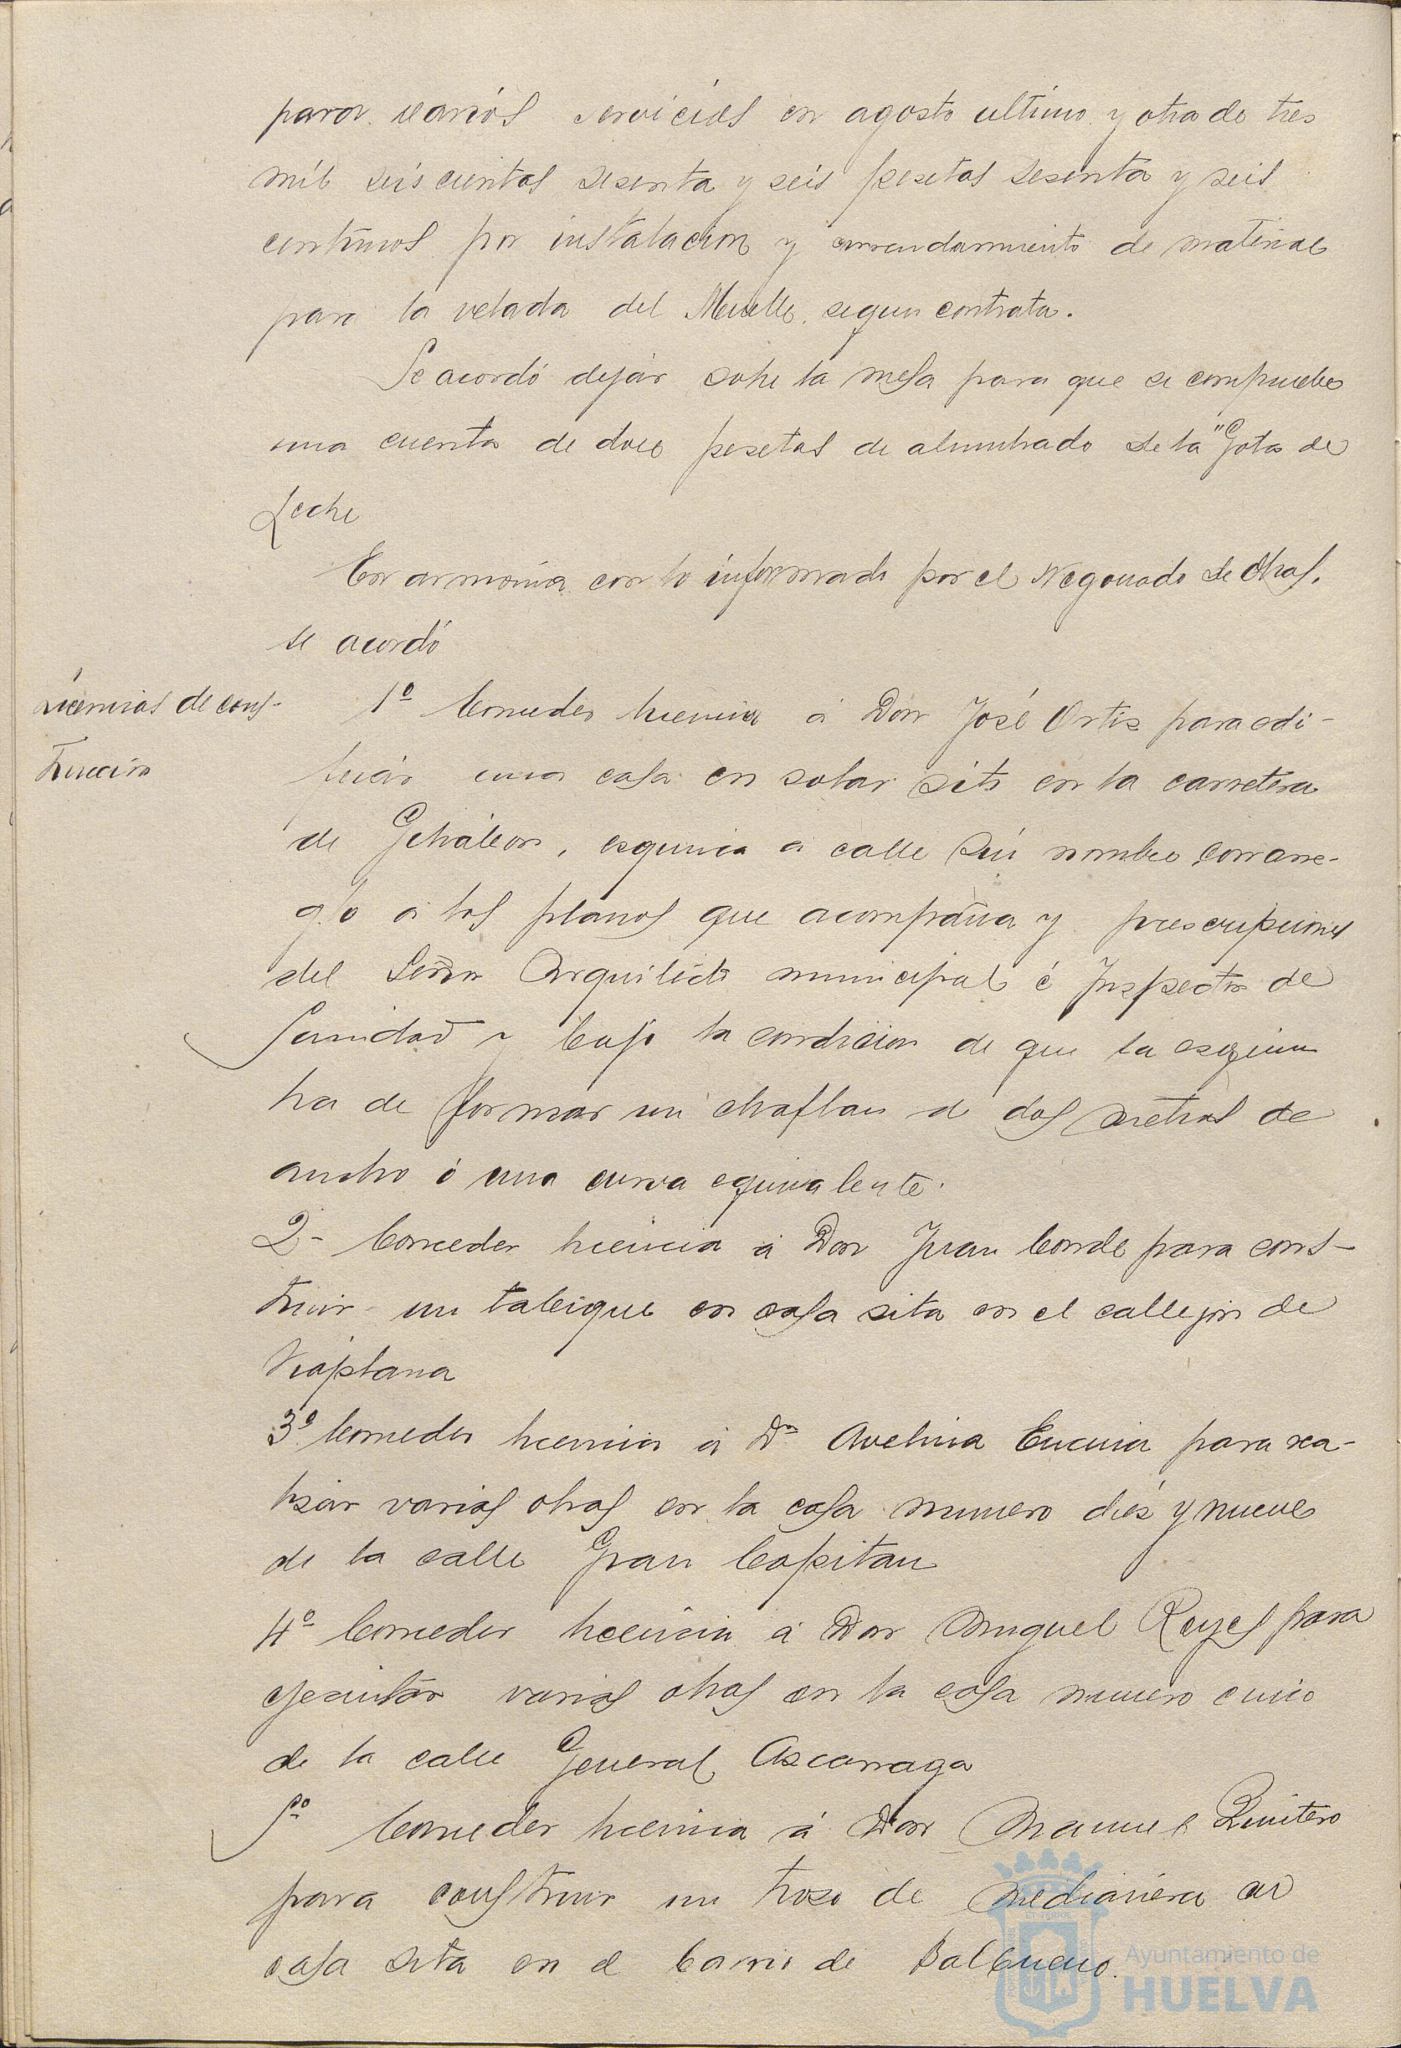 para varios servicios en agosto ultimo y otra de tres
mil seiscientas sesenta y seis pesetas sesenta y seis
centimos por instalacion y arrendamiento de material
para la velada del Muelle, segun contrata.
Se acordó dejar sobre la mesa para que se compruebe
una cuenta de doce pesetas de alumbrado de la "Gota de
Leche
En armonia con lo informado por el Negociado de Obras,
se acordó
Licencias de cons-
trucción
1º Conceder licencia á Don José Ortiz para edi-
ficar una casa en solar sito en la carretera
de Gibraleon, esquina a calle sin nombre con arre-
glo a los planos que acompaña y prescripciones
del Señor Arquitecto municipal é Inspector de
Sanidad y bajo la condicion de que la esquina
ha de formar un chaflan de dos metros de
ancho ó una curva equivalente.
2- Conceder licencia á Don Juan Conde para cons-
truir un tabique en casa sita en el callejon de
Viaplana
3º Conceder licencia á Dª Avelina Encina para rea-
lizar varias obras en la casa numero diez y nueve
de la calle Gran Capitan
4º Conceder licencia á Don Miguel Reyes para
ejecutar varias obras en la casa numero cinco
de la calle General Ascarraga
5º Conceder licencia á Don Manuel Quintero
para construir un trozo de medianera en
casa sita en el barrio de Balbueno.
Ayuntamiento de
HUELVA